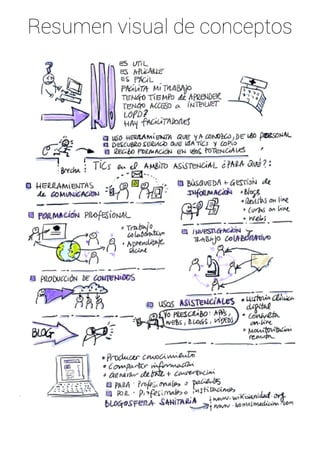 Resumen visual de conceptos
ES UTIL
ES APLICABLE
ES FACIL
FACILITA MI TRABAJO
TENGO TIEMPO de APRENDER
TENGO ACCESO a INTERNET
LOPD?
HAY FACILITADORES
USO HERRAMIENTA QUE YA CONOZCO, DE USO PERSONAL
DESCUBRO SERVICIO QUE USA TICs Y COPIO
RECIBO FORMACIÓN EN SUS POTENCIALES
Brecha: TICs en el AMBITO ASISTENCIAL ¿PARA QUÉ?:
HERRAMIENTAS
de COMUNICACIÓN
BÚSQUEDA + GESTIÓN de
INFORMACIÓN
• Blogs
• Revistas on line
• Cursos on line
• Webs
FORMACIÓN PROFESIONAL
• Trabajo
colaborativo
• Aprendizaje
online
INVESTIGACIÓN Y
TRABAJO COLABORATIVO
PRODUCCIÓN DE CONTENIDOS
BLOG
USOS ASISTENCIALES
YO PRESCRIBO: APPS,
WEBS, BLOGS, VIDEOS
• Historia clínica
digital
• Consulta
on-line
• Monitorización
remota
• Producer conocimiento
• Compartir información
• Generar debate + conversación
PARA: Profesionales o pacientes
POR: Profesionales o instituciones
BLOGOSFERA SANITARIA
www.wikisanidad.org